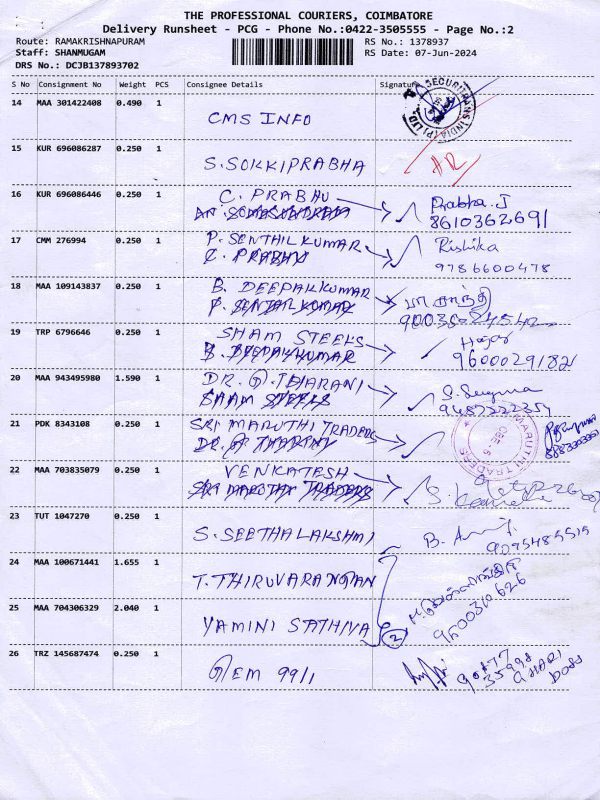 THE PROFESSIONAL COURIERS, COIMBATORE
Delivery Runsheet - PCG - Phone No.:0422-3505555 - Page No.:2
Route: RAMAKRISHNAPURAM RS No.: 1378937
Staff: SHANMUGAM RS Date: 07-Jun-2024
DRS No.: DCJB137893702
S No Consignment No Weight PCS Consignee Details Signature
14 MAA 301422408 0.490 1 CMS INFO
15 KUR 696086287 0.250 1 S. SOKKIPRABHA
16 KUR 696086446 0.250 1 C. PRABHU Prabha. J
8610362691
17 CMM 276994 0.250 1 P. SENTHILKUMAR Rishika
C. PRABHU 9786600478
18 MAA 109143837 0.250 1 B. DEEPAKKUMAR
P. SENTHILKUMAR
19 TRP 6796646 0.250 1 SHAM STEELS
B. DEEPAKKUMAR 9600029182
20 MAA 943495980 1.590 1 DR. G. TEJARANI
SHAM STEELS
21 PDK 8343108 0.250 1 SRI MARUTHI TRADERS MARUTHI TRADERS
22 MAA 703835079 0.250 1 VENKATESH
SRI MARUTHI TRADERS
23 TUT 1047270 0.250 1 S. SEETHALAKSHMI B.
9095485515
24 MAA 100671441 1.655 1 T. THIRUVARANGAN
9600310626
25 MAA 704306329 2.040 1 YAMINI SATHIYA 2
26 TRZ 145687474 0.250 1 GEM 99/1
35998
G HARI
DOSS